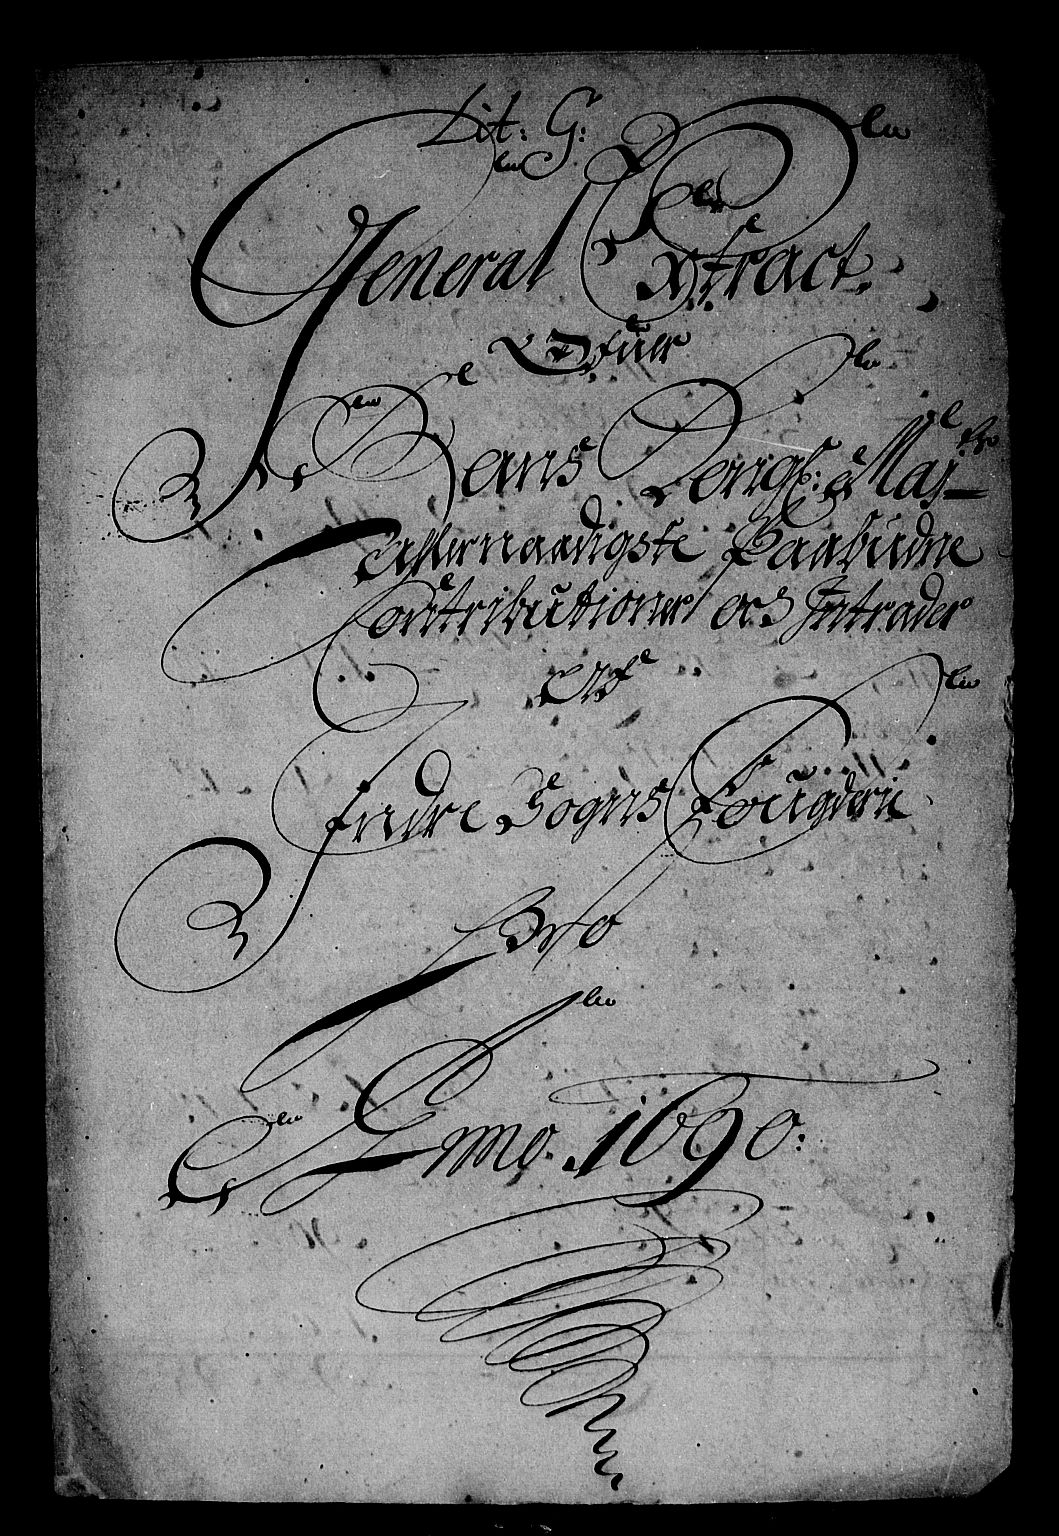 Lit: G:
General Extract
Ofuer
Hans Kongl: Maj-
allernaadigste Paabudne
Contributioner oc Intrader
Af
Indre Sogns Fougderie
Pro
Anno. 1690: